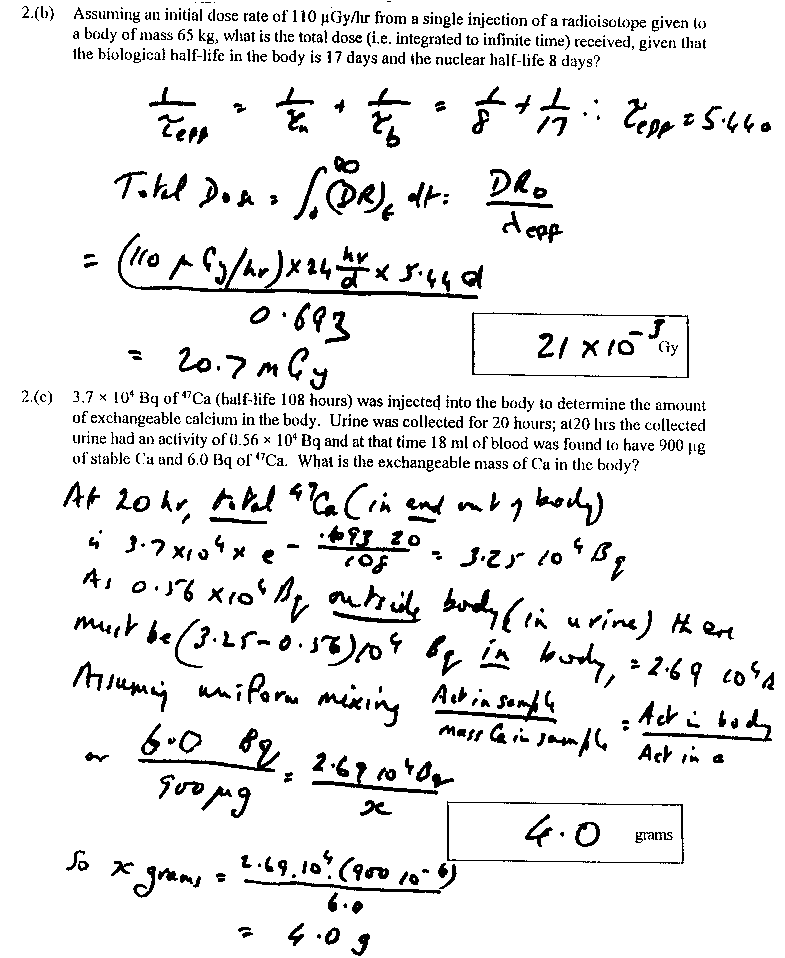 2.(b) Assuming an initial dose rate of 110 μGy/hr from a single injection of a radioisotope given to
a body of mass 65 kg, what is the total dose (i.e. integrated to infinite time) received, given that
the biological half-life in the body is 17 days and the nuclear half-life 8 days?
1/τeff = 1/τn + 1/τb = 1/8 + 1/17 ∴ τeff = 5.44 D
Total Dose = ∫₀^∞ (DR)t dt = DR₀/λeff
= (110 μGy/hr) × 24 hr/d × 5.44 d / 0.693
= 20.7 mGy
21 × 10⁻³ Gy
2.(c) 3.7 × 10⁴ Bq of ⁴⁷Ca (half-life 108 hours) was injected into the body to determine the amount
of exchangeable calcium in the body. Urine was collected for 20 hours; at20 hrs the collected
urine had an activity of 0.56 × 10⁴ Bq and at that time 18 ml of blood was found to have 900 μg
of stable Ca and 6.0 Bq of ⁴⁷Ca. What is the exchangeable mass of Ca in the body?
At 20 hr, total ⁴⁷Ca (in and out of body)
is 3.7 × 10⁴ × e - .693 20 / 108 = 3.25 10⁴ Bq
As 0.56 × 10⁴ Bq outside body (in urine) there
must be (3.25-0.56)10⁴ Bq in body, = 2.69 10⁴
Assuming uniform mixing Act in sample / Mass Ca in sample = Act in body / Act in a
or 6.0 Bq / 900 μg = 2.69 10⁴ Bq / x
4.0 grams
So x grams = 2.69.10⁴.(900 10⁻⁶) / 6.0
= 4.0 g